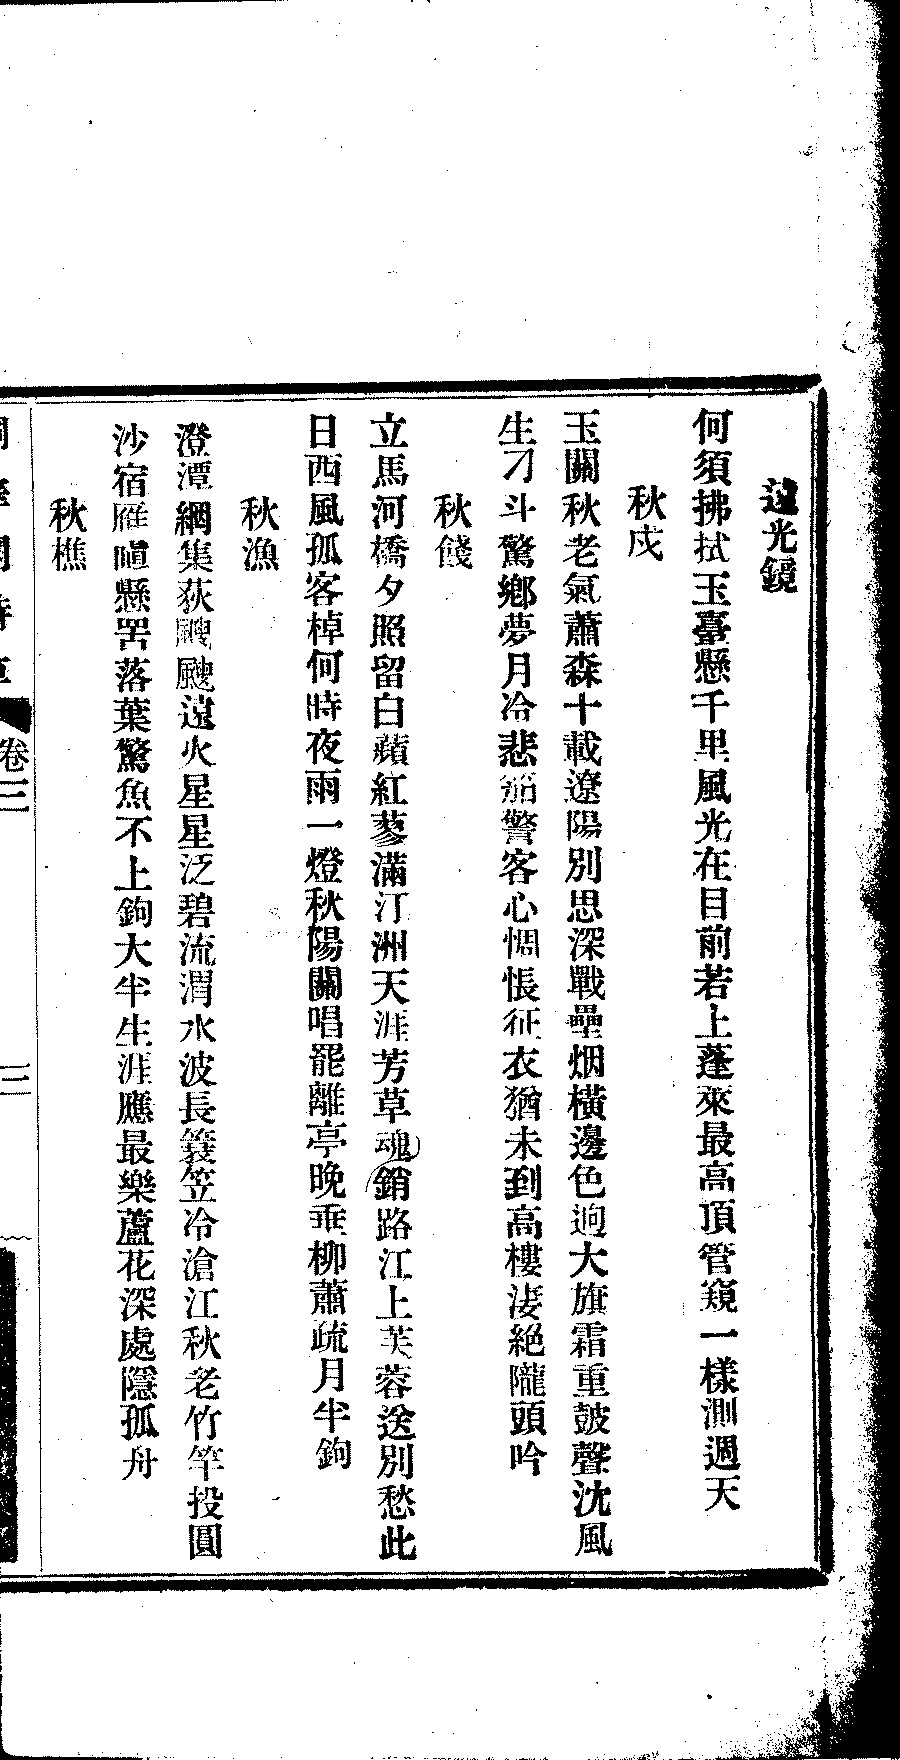 遠光鏡
何須拂拭玉臺懸千里風光在目前若上蓬來最高頂管窺一樣測週天
秋戍
玉關秋老氣蕭森十載遼陽別思深戰壘烟橫邊色逈大旗霜重鼓聲沈風
生刁斗驚鄉夢月冷悲笳警客心惆悵征衣猶未到高樓淒絕隴頭吟
秋餞
立馬河橋夕照留白蘋紅蓼滿汀洲天涯芳草魂銷路江上芙蓉送別愁此
日西風孤客棹何時夜雨一燈秋陽關唱罷離亭晚垂柳蕭疏月半鉤
秋漁
澄潭網集荻颼颼遠火星星泛碧流渭水波長簑笠冷滄江秋老竹竿投圓
沙宿雁瞋懸罟落葉驚魚不上鉤大半生涯應最樂蘆花深處隱孤舟
秋樵
卷三
三